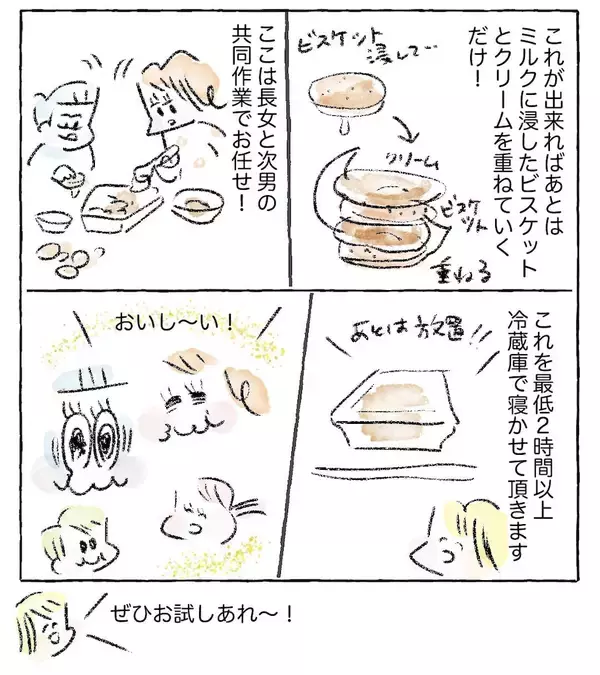 これが出来ればあとは
ミルクに浸したビスケット
とクリームを重ねていく
だけ！
ビスケット
浸して…
クリーム
ビスケット
重ねる
ここは長女と次男の
共同作業でお任せ！
これを最低2時間以上
冷蔵庫で寝かせて頂きます
あとは放置!!
おいし〜い！
ぜひお試しあれ〜！